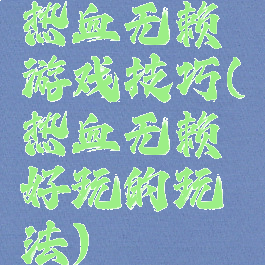 热血无赖
游戏技巧(
热血无赖
好玩的玩
法)